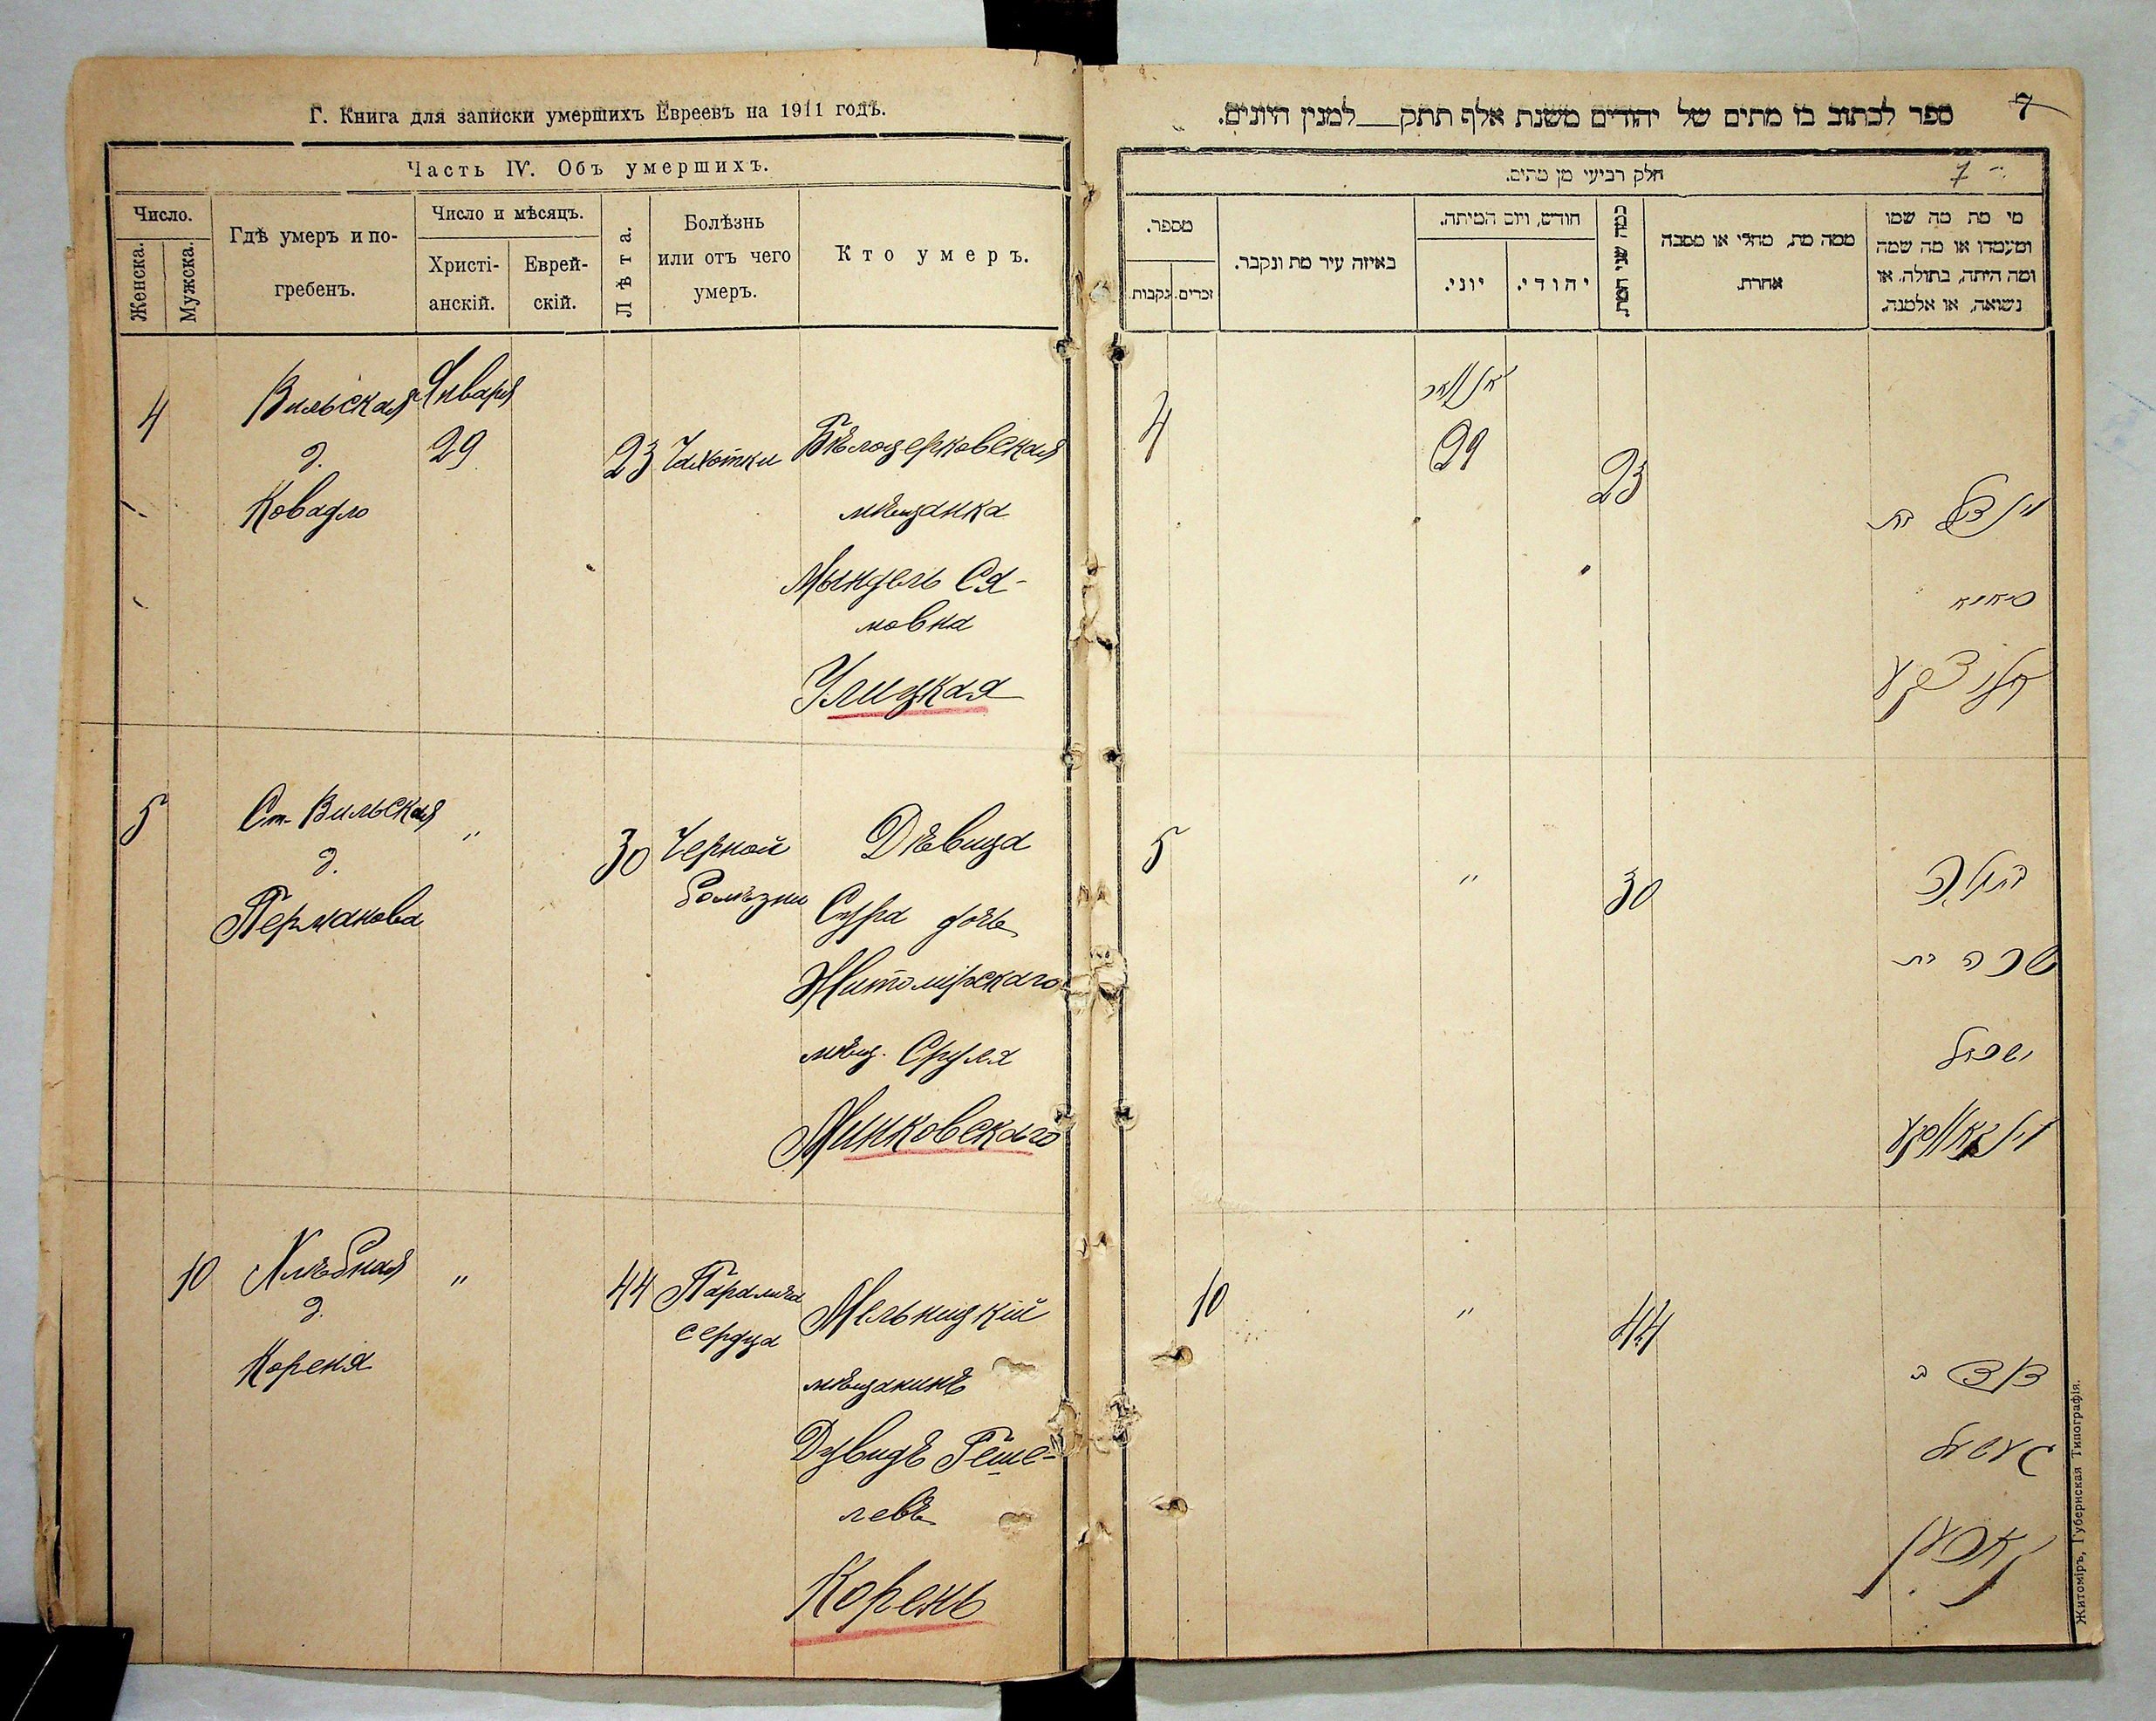 Г. Книга для записки умершихъ Евреевъ на 1911 годъ.
Часть IV. Объ умершихъ.
Число.
Женска.
Мужска.
Гдѣ умеръ и по-
гребенъ.
Число и мѣсяцъ.
Христі-
анскій.
Еврей-
скій.
Лѣта.
Болѣзнь
или отъ чего
умеръ.
Кто умеръ.
4
Вильская
д.
Ковадло
Января
29
23
Чахотки
Бѣлоцерковская
мѣщанка
Мындель Ся-
мовна
Улицкая
5
Ст-Вильская
д.
Перманова
"
30
Черной
болѣзни
Дѣвица
Сура дочь
Житомірскаго
мѣщ. Сруля
Минковскаго
10
Хлѣбная
д.
Кореня
"
44
Паралича
сердца
Мельницкій
мѣщанинъ
Дувидъ Геше-
левъ
Корень
ספר לכתוב בו מתים של יהודים משנת אלף תתק למנין היונים.
7
חלק רביעי מן מתים.
7
מספר.
נקבות.
זכרים.
באיזה עיר מת ונקבר.
חודש, ויום המיתה.
יוני.
יהודי.
כמה שני המת.
ממה מת, מחלי או מסבה
אחרת.
מי מת מה שמו
ומעמדו או מה שמה
ומה היתה, בתולה, או
נשואה, או אלמנה.
4
יאנואר
29
23
מינדל בת
סיאמא
אוליצקע
5
"
30
בתולה
שרה בת
ישראל
מינקאווסקע
10
"
44
דוד ב
העשיל
קארען
Житоміръ, Губернская Типографія.